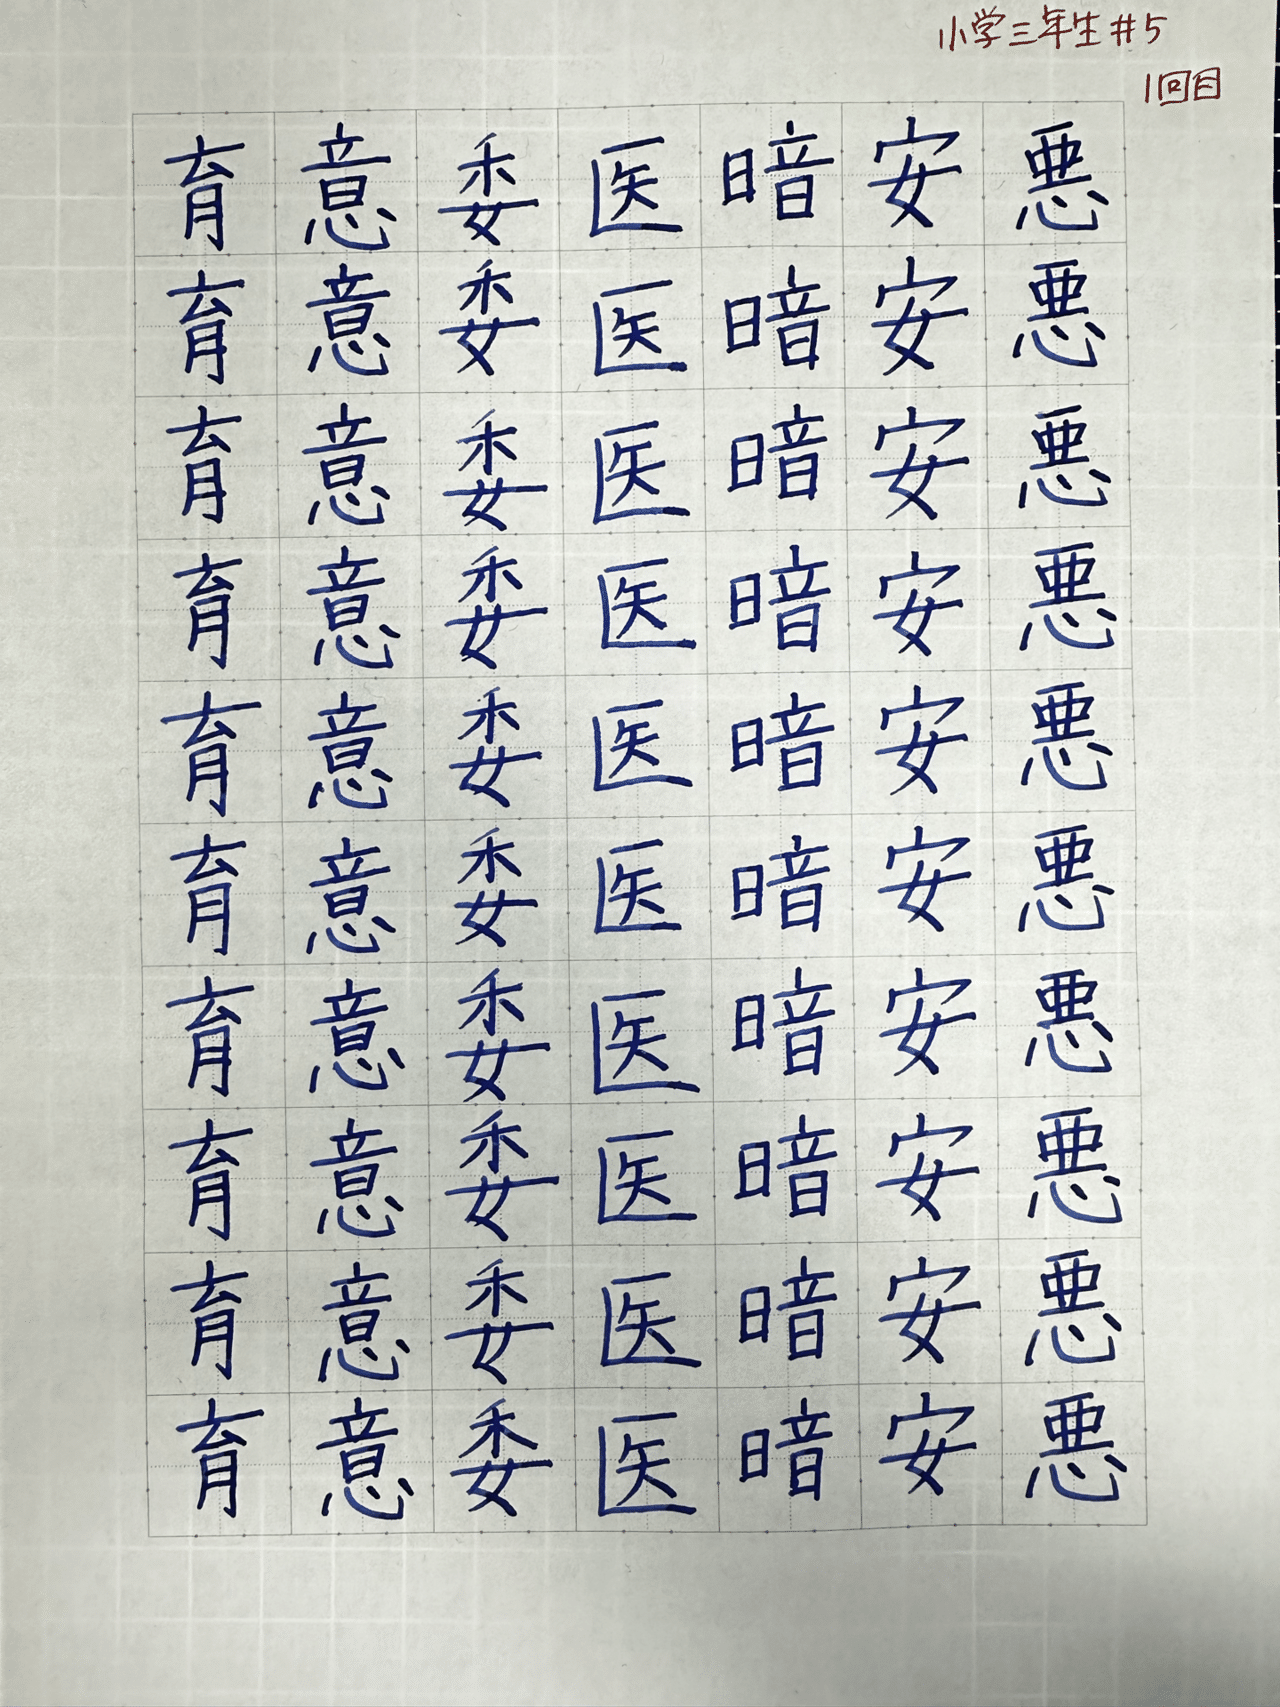 小学三年生#5
1回目
悪悪悪悪悪悪悪悪悪悪
安安安安安安安安安安
暗暗暗暗暗暗暗暗暗暗
医医医医医医医医医医
委委委委委委委委委委
意意意意意意意意意意
育育育育育育育育育育